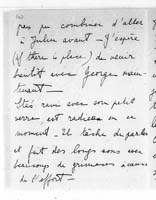 pas pu combiner d'aller
à Julien avant — J'espère
(if there is place) de venir
bientôt avec Georges main-
tenant —
Stés rami avec son petit
verre est radieux en ce
moment — il tâche de parler
et fait des longs sons avec
beaucoup de grimaces à cause
de l'effort —